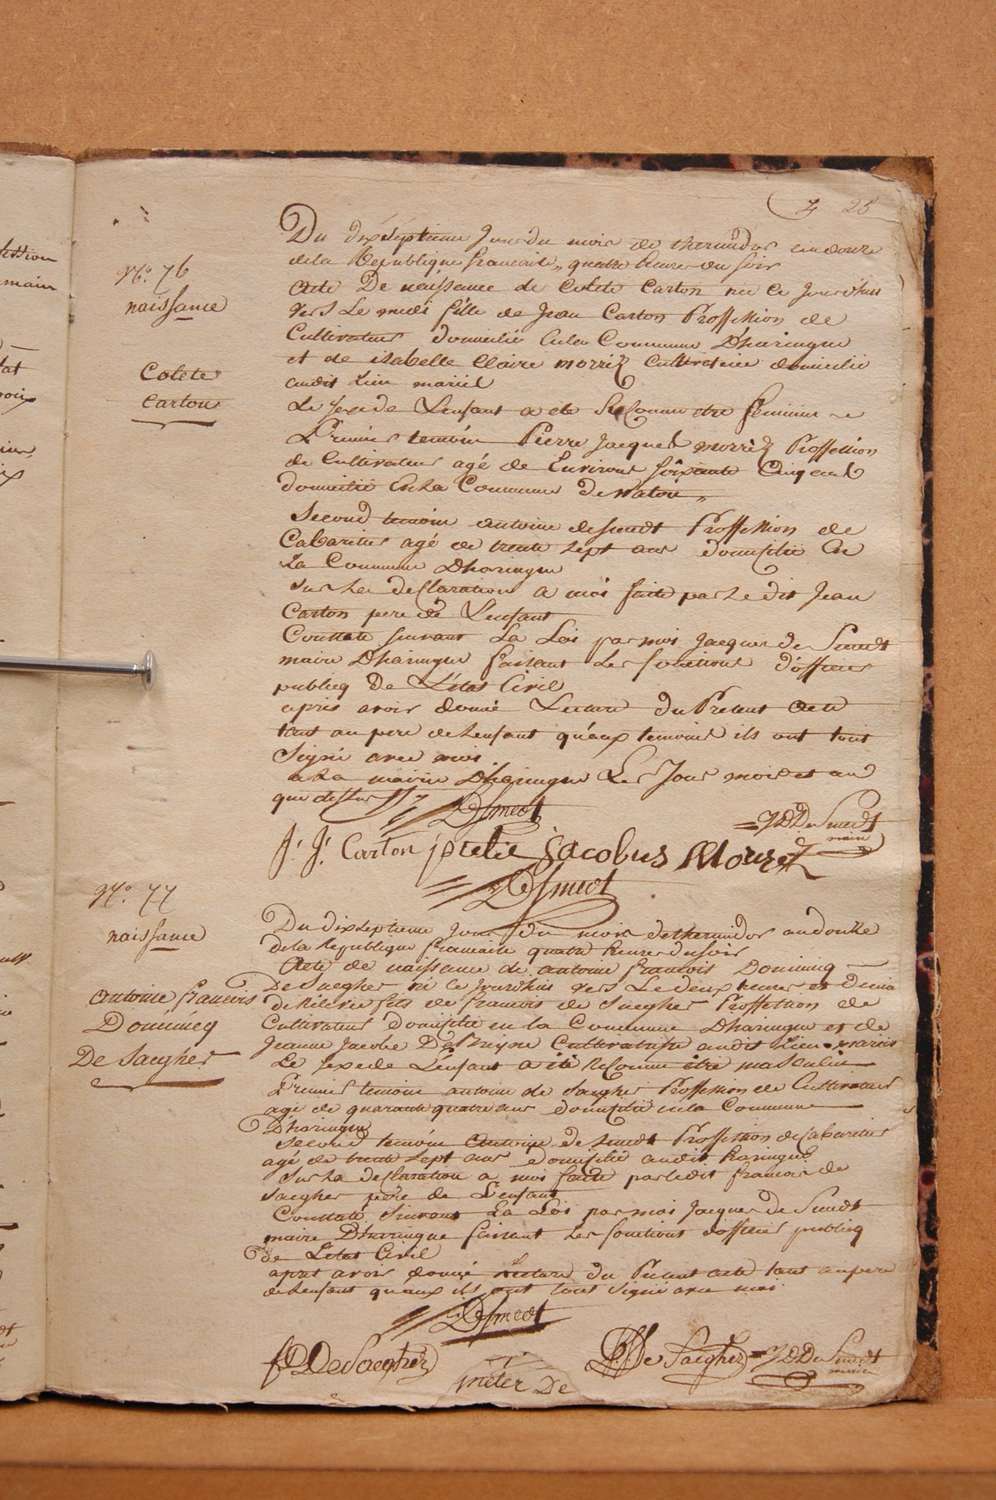 25
N.o 76
naissance
Colete
Carton
Du dixseptieme Jour du mois de thermidor an douze
de la Republique francaise, quatre heures du soir
acte De naissance de Colete Carton née ce Jourdhui
vers Le midi fille de Jean Carton Proffession de
Cultivateur domicilié en la Commune Dharingue
et de isabelle Claire morrez Cultivatrice domicilié
audit Lieu mariés
Le sexe de Lenfant a été Reconnu etre feminin
Premier temoin Pierre Jacques morrez Proffession
de Cultivateur agé de Environ soixante Cinq ans
domicilié En La Commune de watou
Second temoin antoine desmedt Proffession de
Cabaretier agé de trente sept ans domicilié En
La Commune Dharingue
sur La declaration a moi faite par Le dit Jean
Carton pere de Lenfant
Constaté suivant La Loi par moi Jacques de Smedt
maire Dharingue faisant Les fonctions d'officier
publicq De L'état Civil
apris avoir donné Lecture du Present acte
tant au pere de Lenfant qu'aux temoins ils ont tous
signé avec moi
a La mairie Dharingue Les Jour mois et an
que dessus
Desmedt
De Smedt
maire
J: J: Carton Jacobus
Desmedt
N.o 77
naissance
antoine francois
Dominicq
De Saegher
Du dixseptieme Jour du mois de thermidor an douze
de la Republique francaise quatre heures du soir
acte de naissance de antoine francois Dominicq
De Saegher né ce Jourdhui vers Le deux heures et Demie
de Relevée fils de francois de Saegher Proffession de
Cultivateur domicilié en la Commune Dharingue et de
Jeanne Jacobe Cultivatrice audit Lieu mariés
Le sexe de Lenfant a été Reconnu être masculin
Premier temoin antoine de Saegher Proffession de Cultivateur
agé de quarante quatre ans domicilié en la Commune
Dharingue
second temoin antoine de smedt Proffession de Cabaretier
agé de trente sept ans domicilié audit haringue
sur La declaration a moi faite par ledit francois de
Saegher pere de Lenfant
Constaté suivant La Loi par moi Jacques de Smedt
maire Dharingue faisant Les fonctions d'officier publicq
de L'etat Civil
apres avoir donné Lecture du Present acte tant au pere
de Lenfant quaux ils ont tous signé avec moi
Desmedt
De Saegher
De Saegher
De Smedt
maire